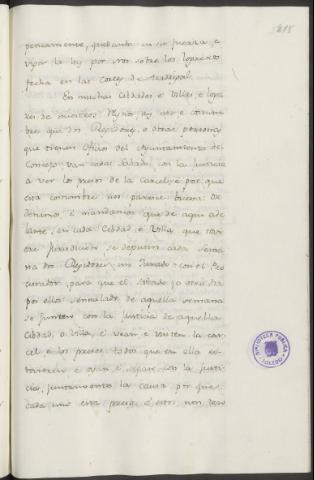 218
pensamiento, quebanta en su fuerza, e
vigor la ley por nos sobre los
fecha en las Cortes de
En muchas Cibdades e Villas e logares
de nuestros Reynos, ay uso e costumbre
que dos Regidores, o otras personas
que tienen Oficios del Ayuntamiento del
Concejo van cada Sabado con la Justicia
a ver los presos de la Carcel, e por que
esta costumbre nos paresce buena: Ordenamos
e mandamos que de aqui adelante,
en cada Cibdad, e Villa, que
jurediccion se deputen cada Semana
dos Regidores un Jurado con el Procurador,
para que el Sabado, o otro dia
por ellos sennalado de aquella semana
se junten con la Justicia de aquella
Cibdad, o Villa, e vean e visiten la carcel
e los presos todos que en ella estovieren
e oyan, e sepan con la Justicia,
juntamente la causa por que
cada uno esta preso: e estos non
BIBLIOTECA PUBLICA
TOLEDO